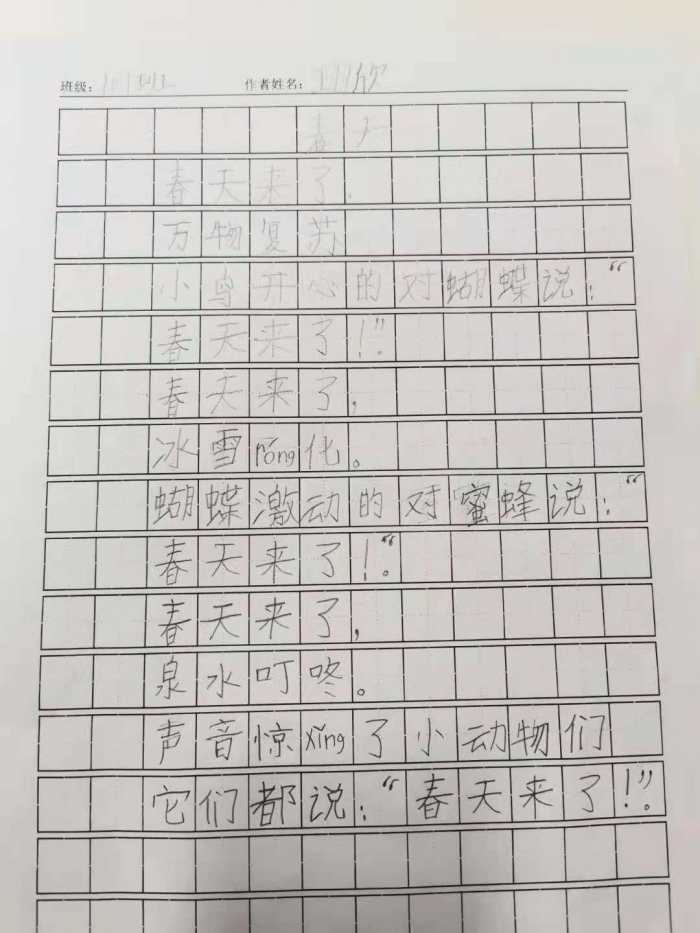 班级： 作者姓名：
春天
春天来了.
万物复苏
小鸟开心的对蝴蝶说：“
春天来了！”
春天来了，
冰雪róng化。
蝴蝶激动的对蜜蜂说：“
春天来了！“。
春天来了，
泉水叮咚。
声音惊xǐng了小动物们
它们都说：“春天来了！”。